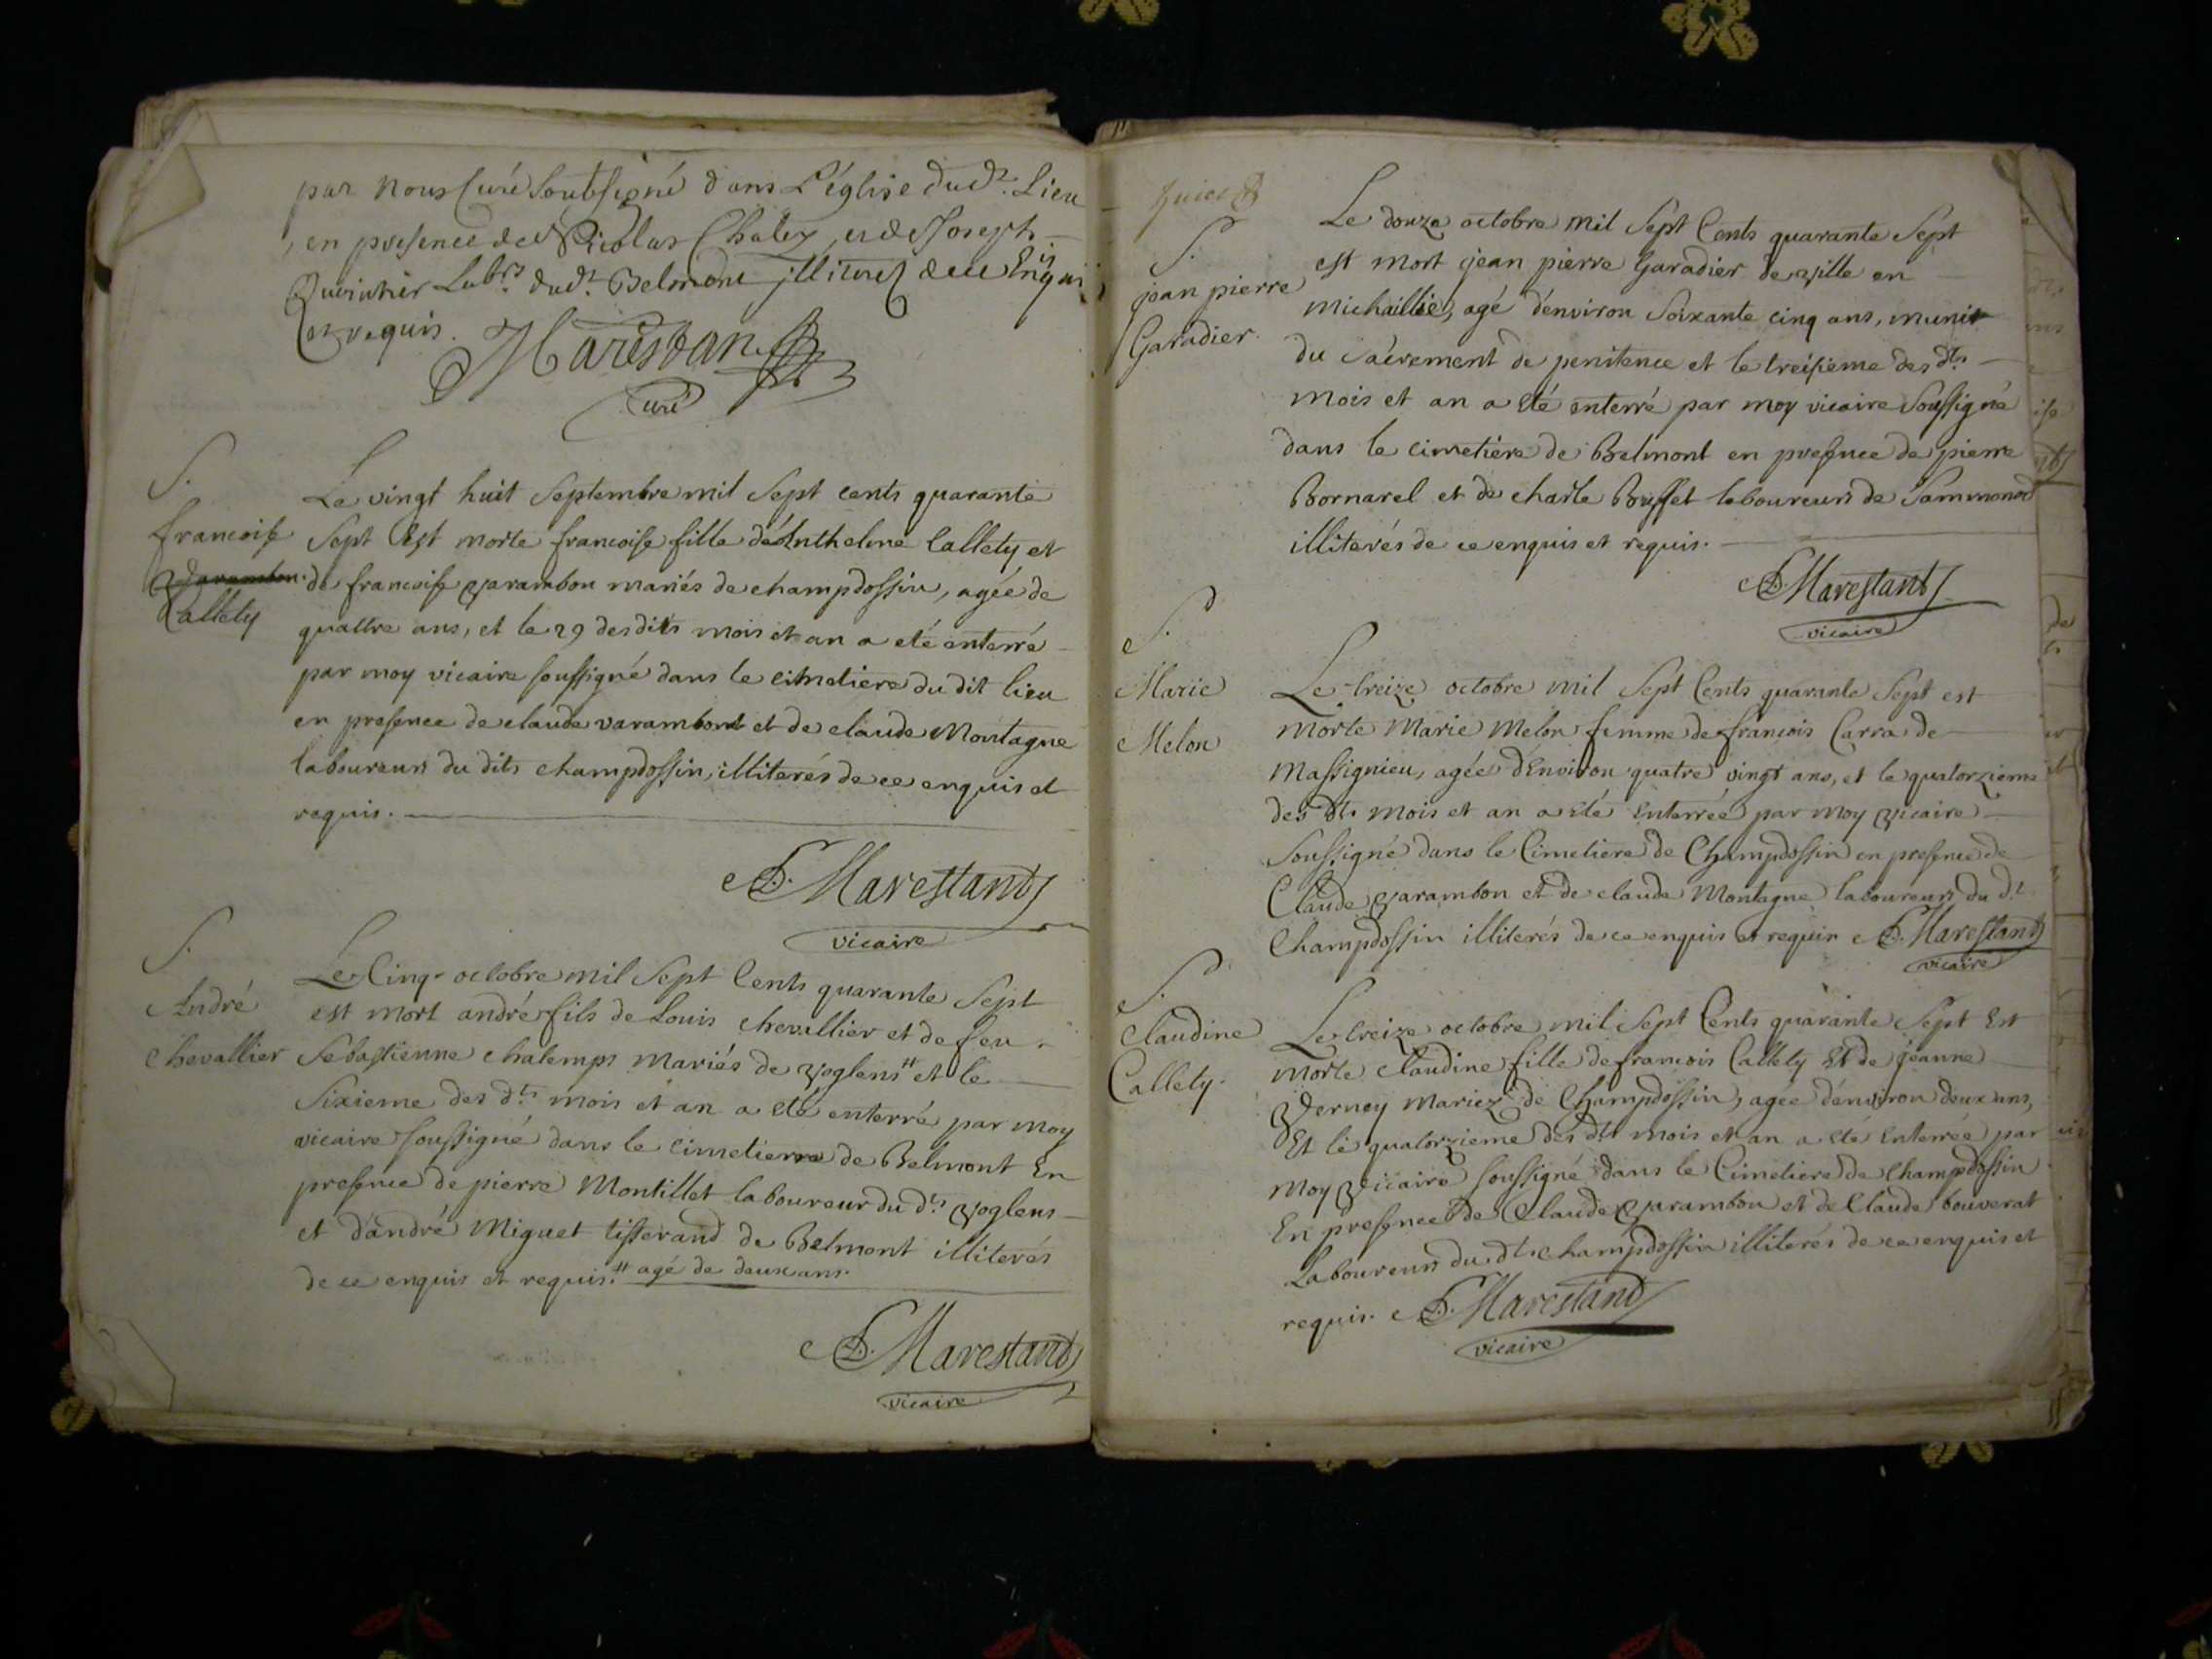 par nous Curé Soubsigné dans L'église dud.t Lieu
en presence de Nicolas Chaley, et de Joseph
Labrs dud.t Belmont illiteres de ce Enquis
et requis.
Marestan
Curé
S.
francoise
Varambon
Callety
Le vingt huit Septembre mil Sept cents quarante
Sept Est morte francoise fille de Anthelme Callety et
de francoise Varambon mariés de champdossin, agée de
quattre ans, et le 29 desdits mois et an a eté enterré
par moy vicaire soussigné dans le cimetiere du dit lieu
en presence de claude varambont et de claude Montagne
laboureurs du dits champdossin, illiterés de ce enquis et
requis.
Marestand
vicaire
S.
André
Chevallier
Le Cinq octobre mil Sept Cents quarante Sept
est mort andré fils de Louis chevallier et de feu
Sebastienne chalemps Mariés de Voglens # et le
Sixieme des dts mois et an a eté enterré par moy
vicaire soussigné dans le cimetierre de Belmont En
presence de pierre Montillet laboureur du dt Voglens
et d'andré Miguet tisserand de Belmont illiterés
de ce enquis et requis. # agé de deux ans.
Marestand
vicaire
S.
jean pierre
Garadier.
Le douze octobre mil Sept Cents quarante Sept
est mort jean pierre Garadier de ville en
michaillie, agé d'environ Soixante cinq ans, munit
du sacrement de penitence et le treisieme des dts
mois et an a eté enterré par moy vicaire Soussigné
dans le cimetière de Belmont en presence de pierre
Bornarel et de charle Busset laboureurs de Sammonod
illiterés de ce enquis et requis.
Marestand
vicaire
S.
Marie
Melon
Le treize octobre mil Sept Cents quarante Sept est
morte Marie Melon femme de francois Carra de
Massignieu, agée d'Environ quatre vingt ans, et le quatorzieme
des dts mois et an a eté Enterrée par moy Vicaire
Soussigné dans le Cimetiere de Champdossin en presence de
Claude Varambon et de claude Montagne laboureurs du dt
Champdossin illiterés de ce enquis et requis Marestand
vicaire
S.
Claudine
Callety.
Le treize octobre mil Sept Cents quarante Sept Est
morte Claudine fille de francois Callety Et de jeanne
Verney Mariez de Champdossin, agée d'environ deux ans,
Et le quatorzieme des dts mois et an a eté Enterrée par
Moy Vicaire soussigné dans le Cimetiere de Champdossin
En presence de Claude Varambon et de Claude bouverat
Laboureurs du dts champdossin illiterés de ce enquis et
requis. Marestand
vicaire